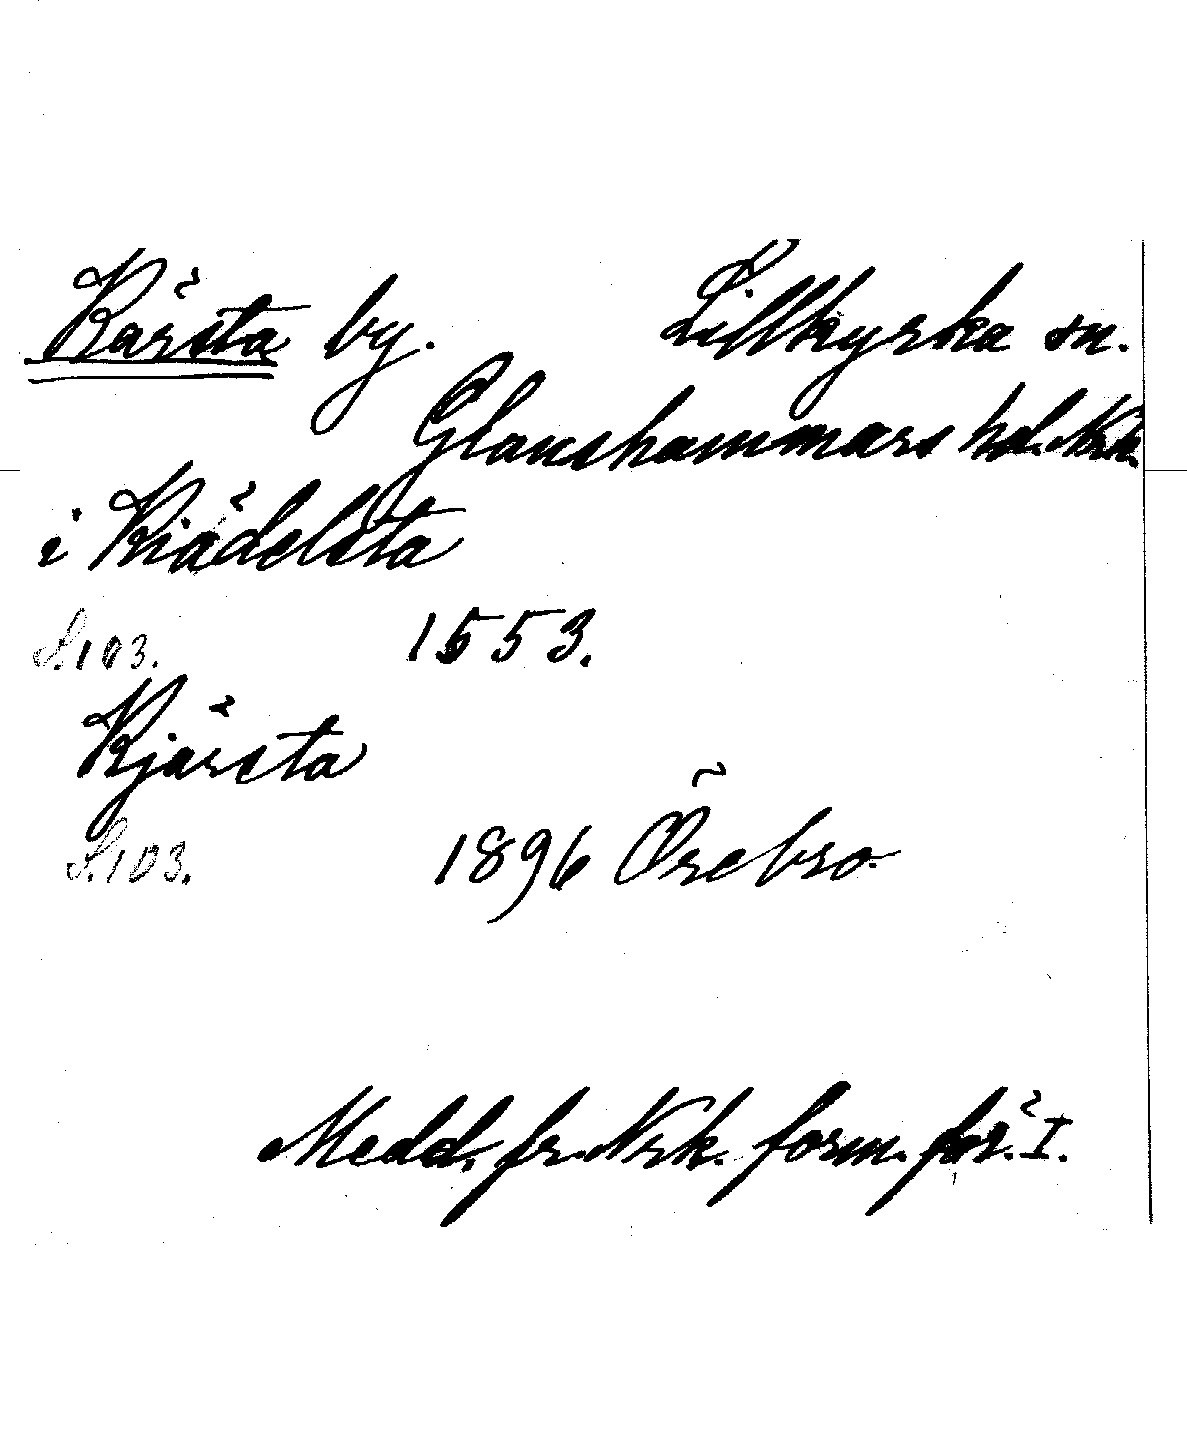 Kärsta by. Lillkyrka sn.
Glanshammars hd. Nrk.
i Kiädelsta
S. 103. 1553.
Kjärsta
S. 103. 1896 Örebro.
Medd. fr. Nrk. forn. för. I.